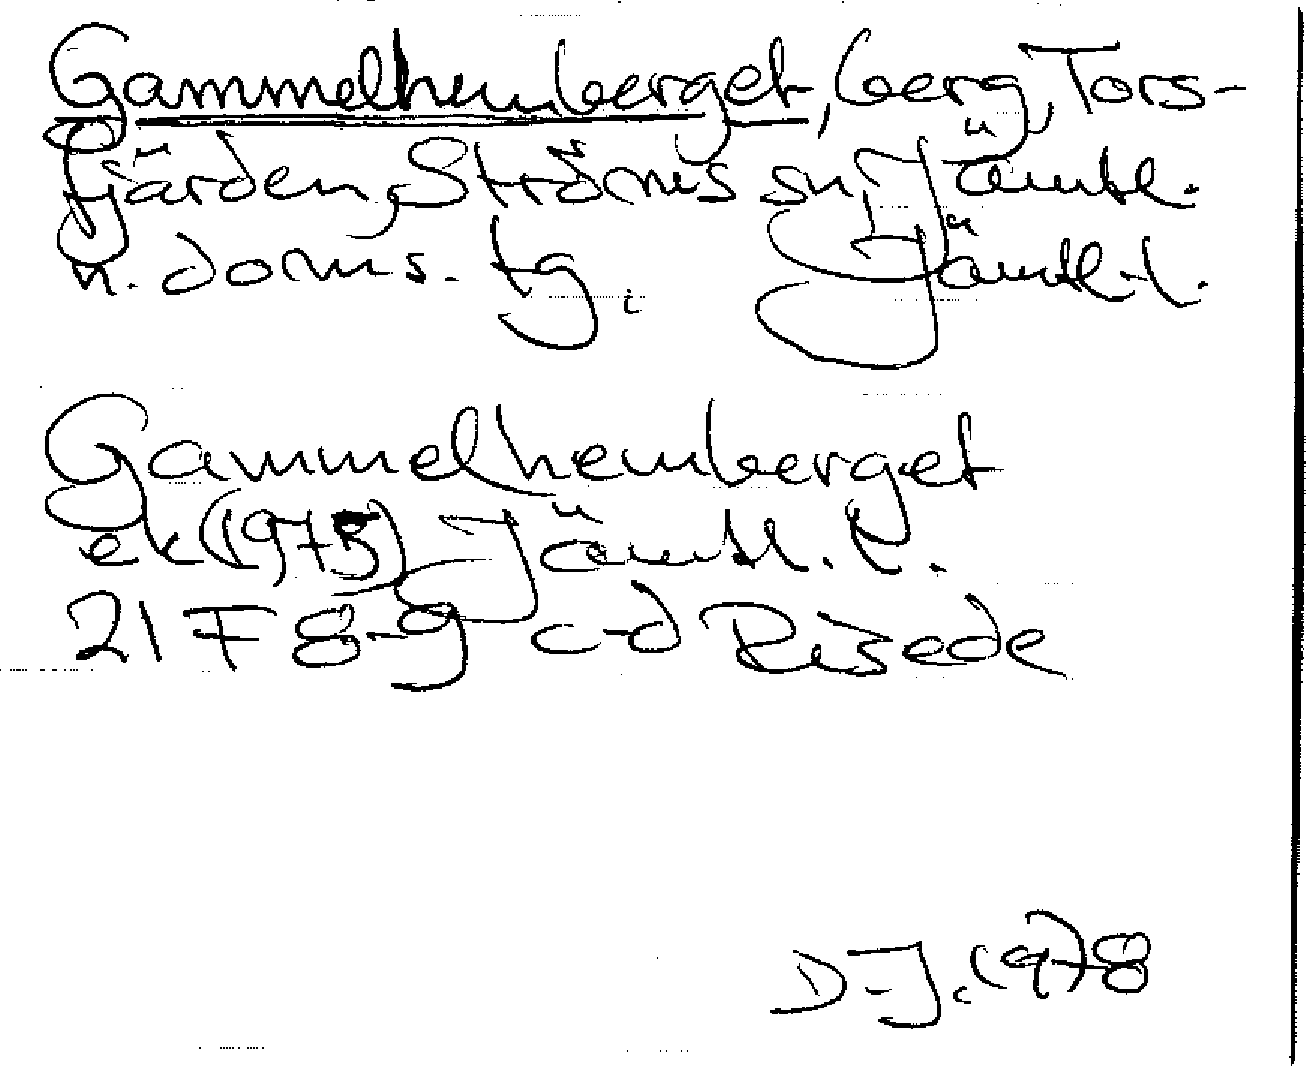 Gammelhemberget, berg, Tors-
fjärden, Ströms sn, Jämtl.
n. doms. tg. Jämtl. l.
Gammelhemberget
ek (1975) Jämtl. l.
21 F 8-9 c-d Risede
D-J. 1978